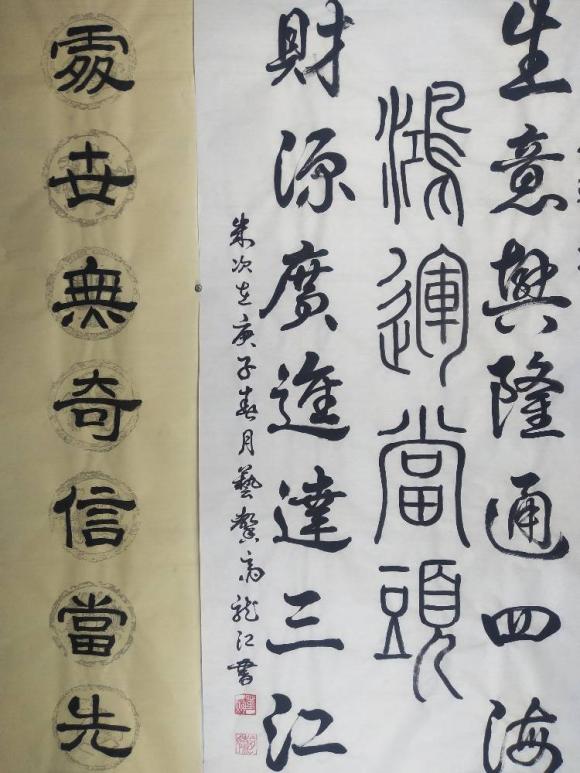 生意興隆通四海
鴻運當頭
財源廣進達三江
次在庚子春月藝龍江書
處世無奇信當先